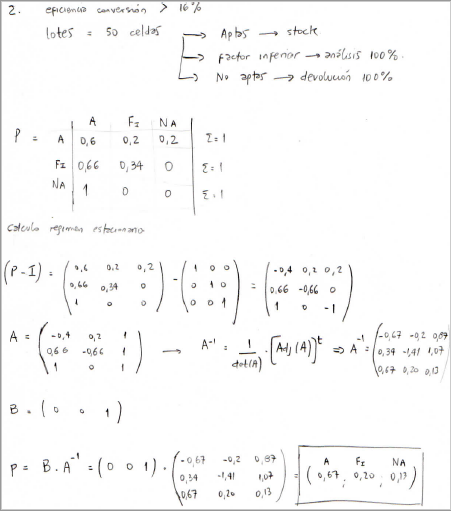 2. eficiencia conversión > 16%
lotes = 50 celdas → Aptas → stock
→ Factor inferior → análisis 100%.
→ No aptas → devolución 100%
A F_I NA
P = A 0,6 0,2 0,2 Σ=1
F_I 0,66 0,34 0 Σ=1
NA 1 0 0 Σ=1
Calculo regimen estacionario
(P-I) = (0,6 0,2 0,2 / 0,66 0,34 0 / 1 0 0) - (1 0 0 / 0 1 0 / 0 0 1) = (-0,4 0,2 0,2 / 0,66 -0,66 0 / 1 0 -1)
A = (-0,4 0,2 1 / 0,66 -0,66 1 / 1 0 1) → A^-1 = 1/det(A) · [Adj(A)]^t ⇒ A^-1 = (-0,67 -0,2 0,87 / 0,34 -1,41 1,07 / 0,67 0,20 0,13)
B = (0 0 1)
P = B.A^-1 = (0 0 1) · (-0,67 -0,2 0,87 / 0,34 -1,41 1,07 / 0,67 0,20 0,13) = A F_I NA (0,67 ; 0,20 ; 0,13)